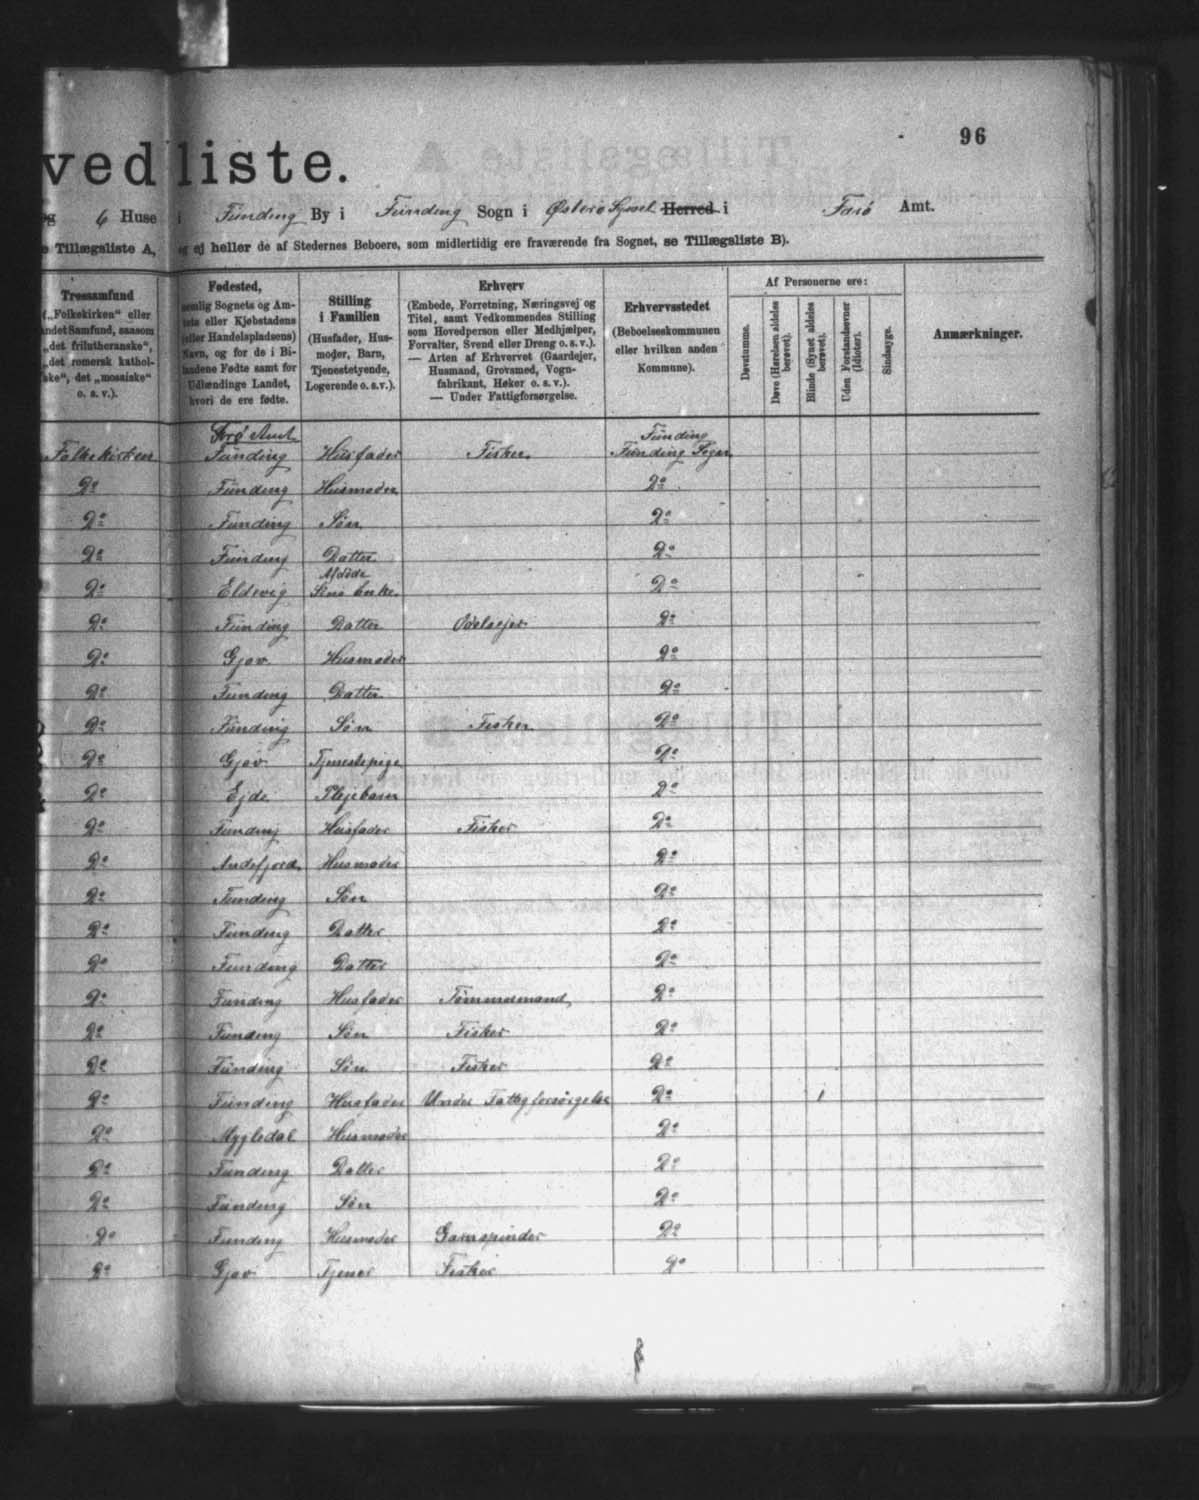 96
vedliste.
og 6 Huse i Funding By i Funding Sogn i Østerø Syssel Herred i Færø Amt.
e Tillægsliste A, og ej heller de af Stedernes Beboere, som midlertidig ere fraværende fra Sognet, se Tillægsliste B).
Trossamfund
(„Folkekirken“ eller
andet Samfund, saasom
„det frilutheranske“,
„det romersk kathol-
ske“, det „mosaiske“
o. s. v.).
Fødested,
nemlig Sognets og Am-
tets eller Kjøbstadens
(eller Handelspladsens)
Navn, og for de i Bi-
landene Fødte samt for
Udlændinge Landet,
hvori de ere fødte.
Stilling
i Familien
(Husfader, Hus-
moder, Barn,
Tjenestetyende,
Logerende o. s. v.).
Erhverv
(Embede, Forretning, Næringsvej og
Titel, samt Vedkommendes Stilling
som Hovedperson eller Medhjælper,
Forvalter, Svend eller Dreng o. s. v.).
— Arten af Erhvervet (Gaardejer,
Husmand, Grovsmed, Vogn-
fabrikant, Høker o. s. v.).
— Under Fattigforsørgelse.
Erhvervsstedet
(Beboelseskommunen
eller hvilken anden
Kommune).
Af Personerne ere:
Døvstumme.
Døve (Hørelsen aldeles
berøvet).
Blinde (Synet aldeles
berøvet).
Uden Forstandsevner
(Idioter).
Sindssyge.
Anmærkninger.
Amt Funding
Folkekirken Funding Husfader Fisker Funding Sogn
Do Funding Husmoder Do
Do Funding Søn Do
Do Funding Datter Do
Afdøde
Do Eldevig Søns Enke Do
Do Funding Datter Do
Do Gjov Husmoder Do
Do Funding Datter Do
Do Funding Søn Fisker Do
Do Gjov Tjenestepige Do
Do Ejde Plejebarn Do
Do Funding Husfader Fisker Do
Do Andefjord Husmoder Do
Do Funding Søn Do
Do Funding Datter Do
Do Funding Datter Do
Do Funding Husfader Tømmermand Do
Do Funding Søn Fisker Do
Do Funding Søn Fisker Do
Do Funding Husfader Under Fattigforsørgelse Do 1
Do Mygledal Husmoder Do
Do Funding Datter Do
Do Funding Søn Do
Do Funding Husmoder Garnspinder Do
Do Gjov Tjener Fisker Do